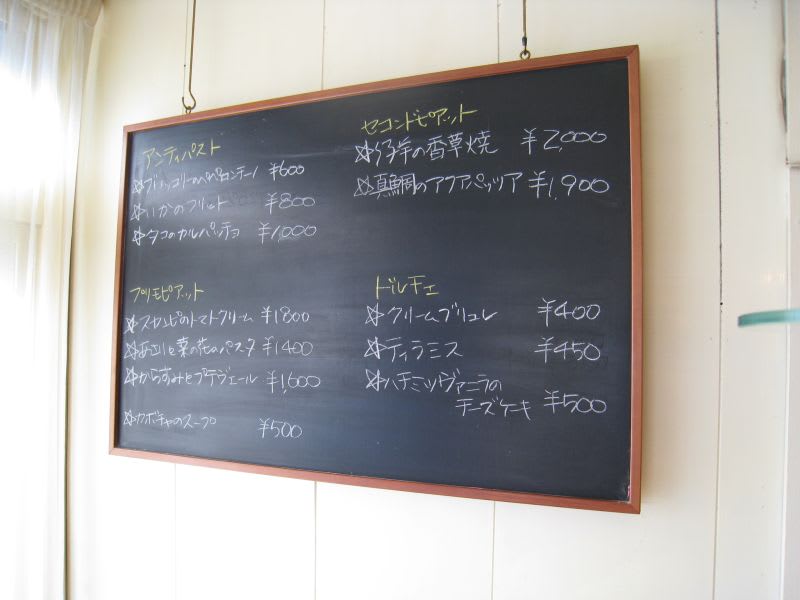 アンティパスト
☆ブロッコリーのペペロンチーノ ¥600
☆いかのフリット ¥800
☆タコのカルパッチョ ¥1,000
プリモピアット
☆スカンピのトマトクリーム ¥1800
☆あさりと菜の花のパスタ ¥1400
☆からすみとプテヴェール ¥1,600
☆カボチャのスープ ¥500
セコンドピアット
☆仔羊の香草焼 ¥2,000
☆真鯛のアクアパッツア ¥1,900
ドルチェ
☆クリームブリュレ ¥400
☆ティラミス ¥450
☆ハチミツヴァニラの
チーズケーキ ¥500